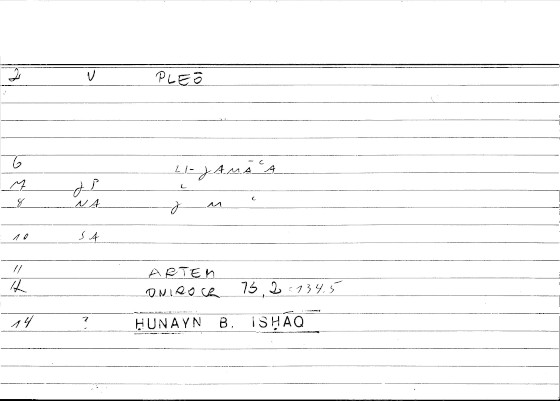 2 V PLEŌ
6 LI-ǧAMĀʿA
7 ǧP ʿ
8 NA ǧ M ʿ
10 SA
11 ARTEM
12 ONIROCR 75,2 : 134.5
14 ? ḤUNAYN B. ISḤĀQ